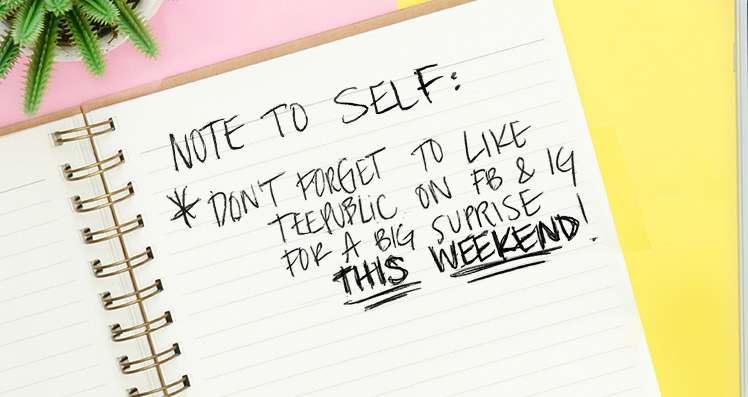 NOTE TO SELF:
* DON'T FORGET TO LIKE
TEEPUBLIC ON FB & IG
FOR A BIG SUPRISE
THIS WEEKEND!